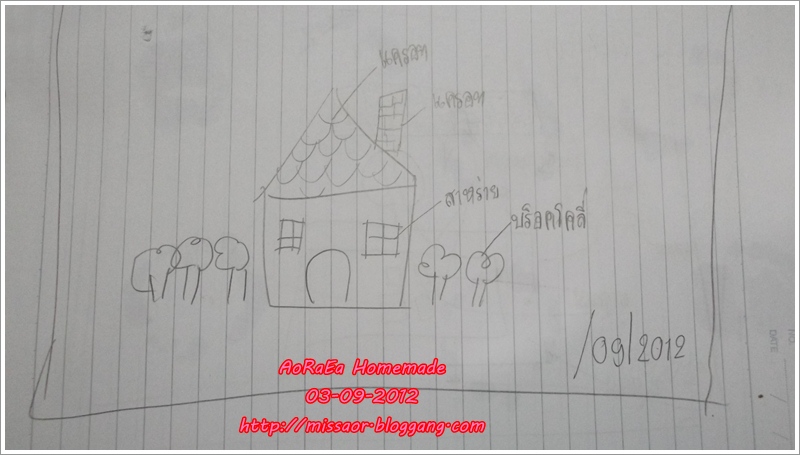 แครอท
แครอท
สาหร่าย
บร็อคโคลี่
/09/2012
NO.
DATE
AoRaEa Homemade
03-09-2012
http://missaor.bloggang.com